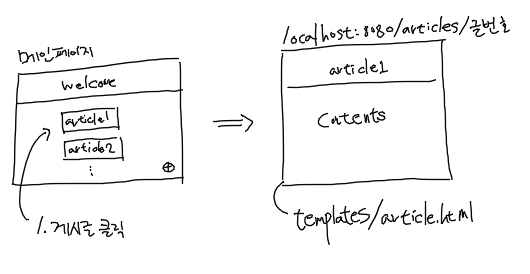 메인페이지
welcome
article1
article2
⋮
⊕
1. 게시글 클릭
⇒
localhost:8080/articles/글번호
article1
Contents
templates/article.html